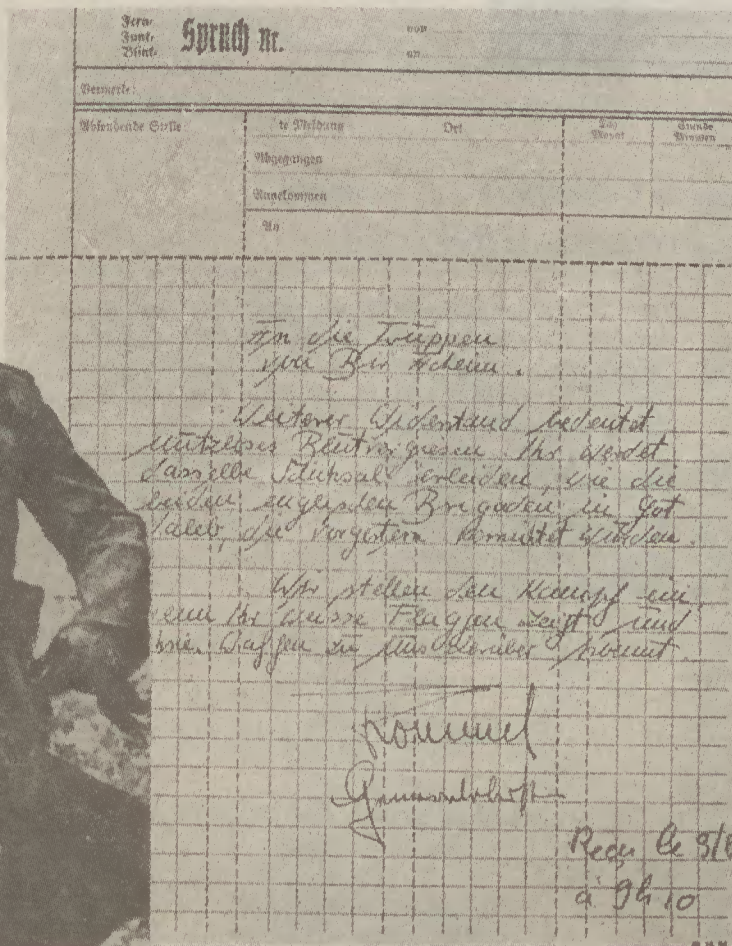 Fern-
Funk-
Blink-
Spruch Nr.
von
an
Vermerke:
Absendende Stelle
te Meldung
Ort
Tag
Monat
Stunde
Minuten
Abgegangen
Angekommen
An
An die Truppen
von Bir Acheim.
Weiterer Widerstand bedeutet
nutzloses Blutvergiesen. Ihr werdet
dasselbe Schicksal erleiden, wie die
beiden englischen Brigaden in Got
Ualeb, die vorgestern vernichtet wurden.
Wir stellen den Kampf ein
wenn Ihr weisse Flaggen zeigt und
ohne Waffen zu uns herüber kommt.
Rommel
Generaloberst
Reçu le 3/6
à 9h10